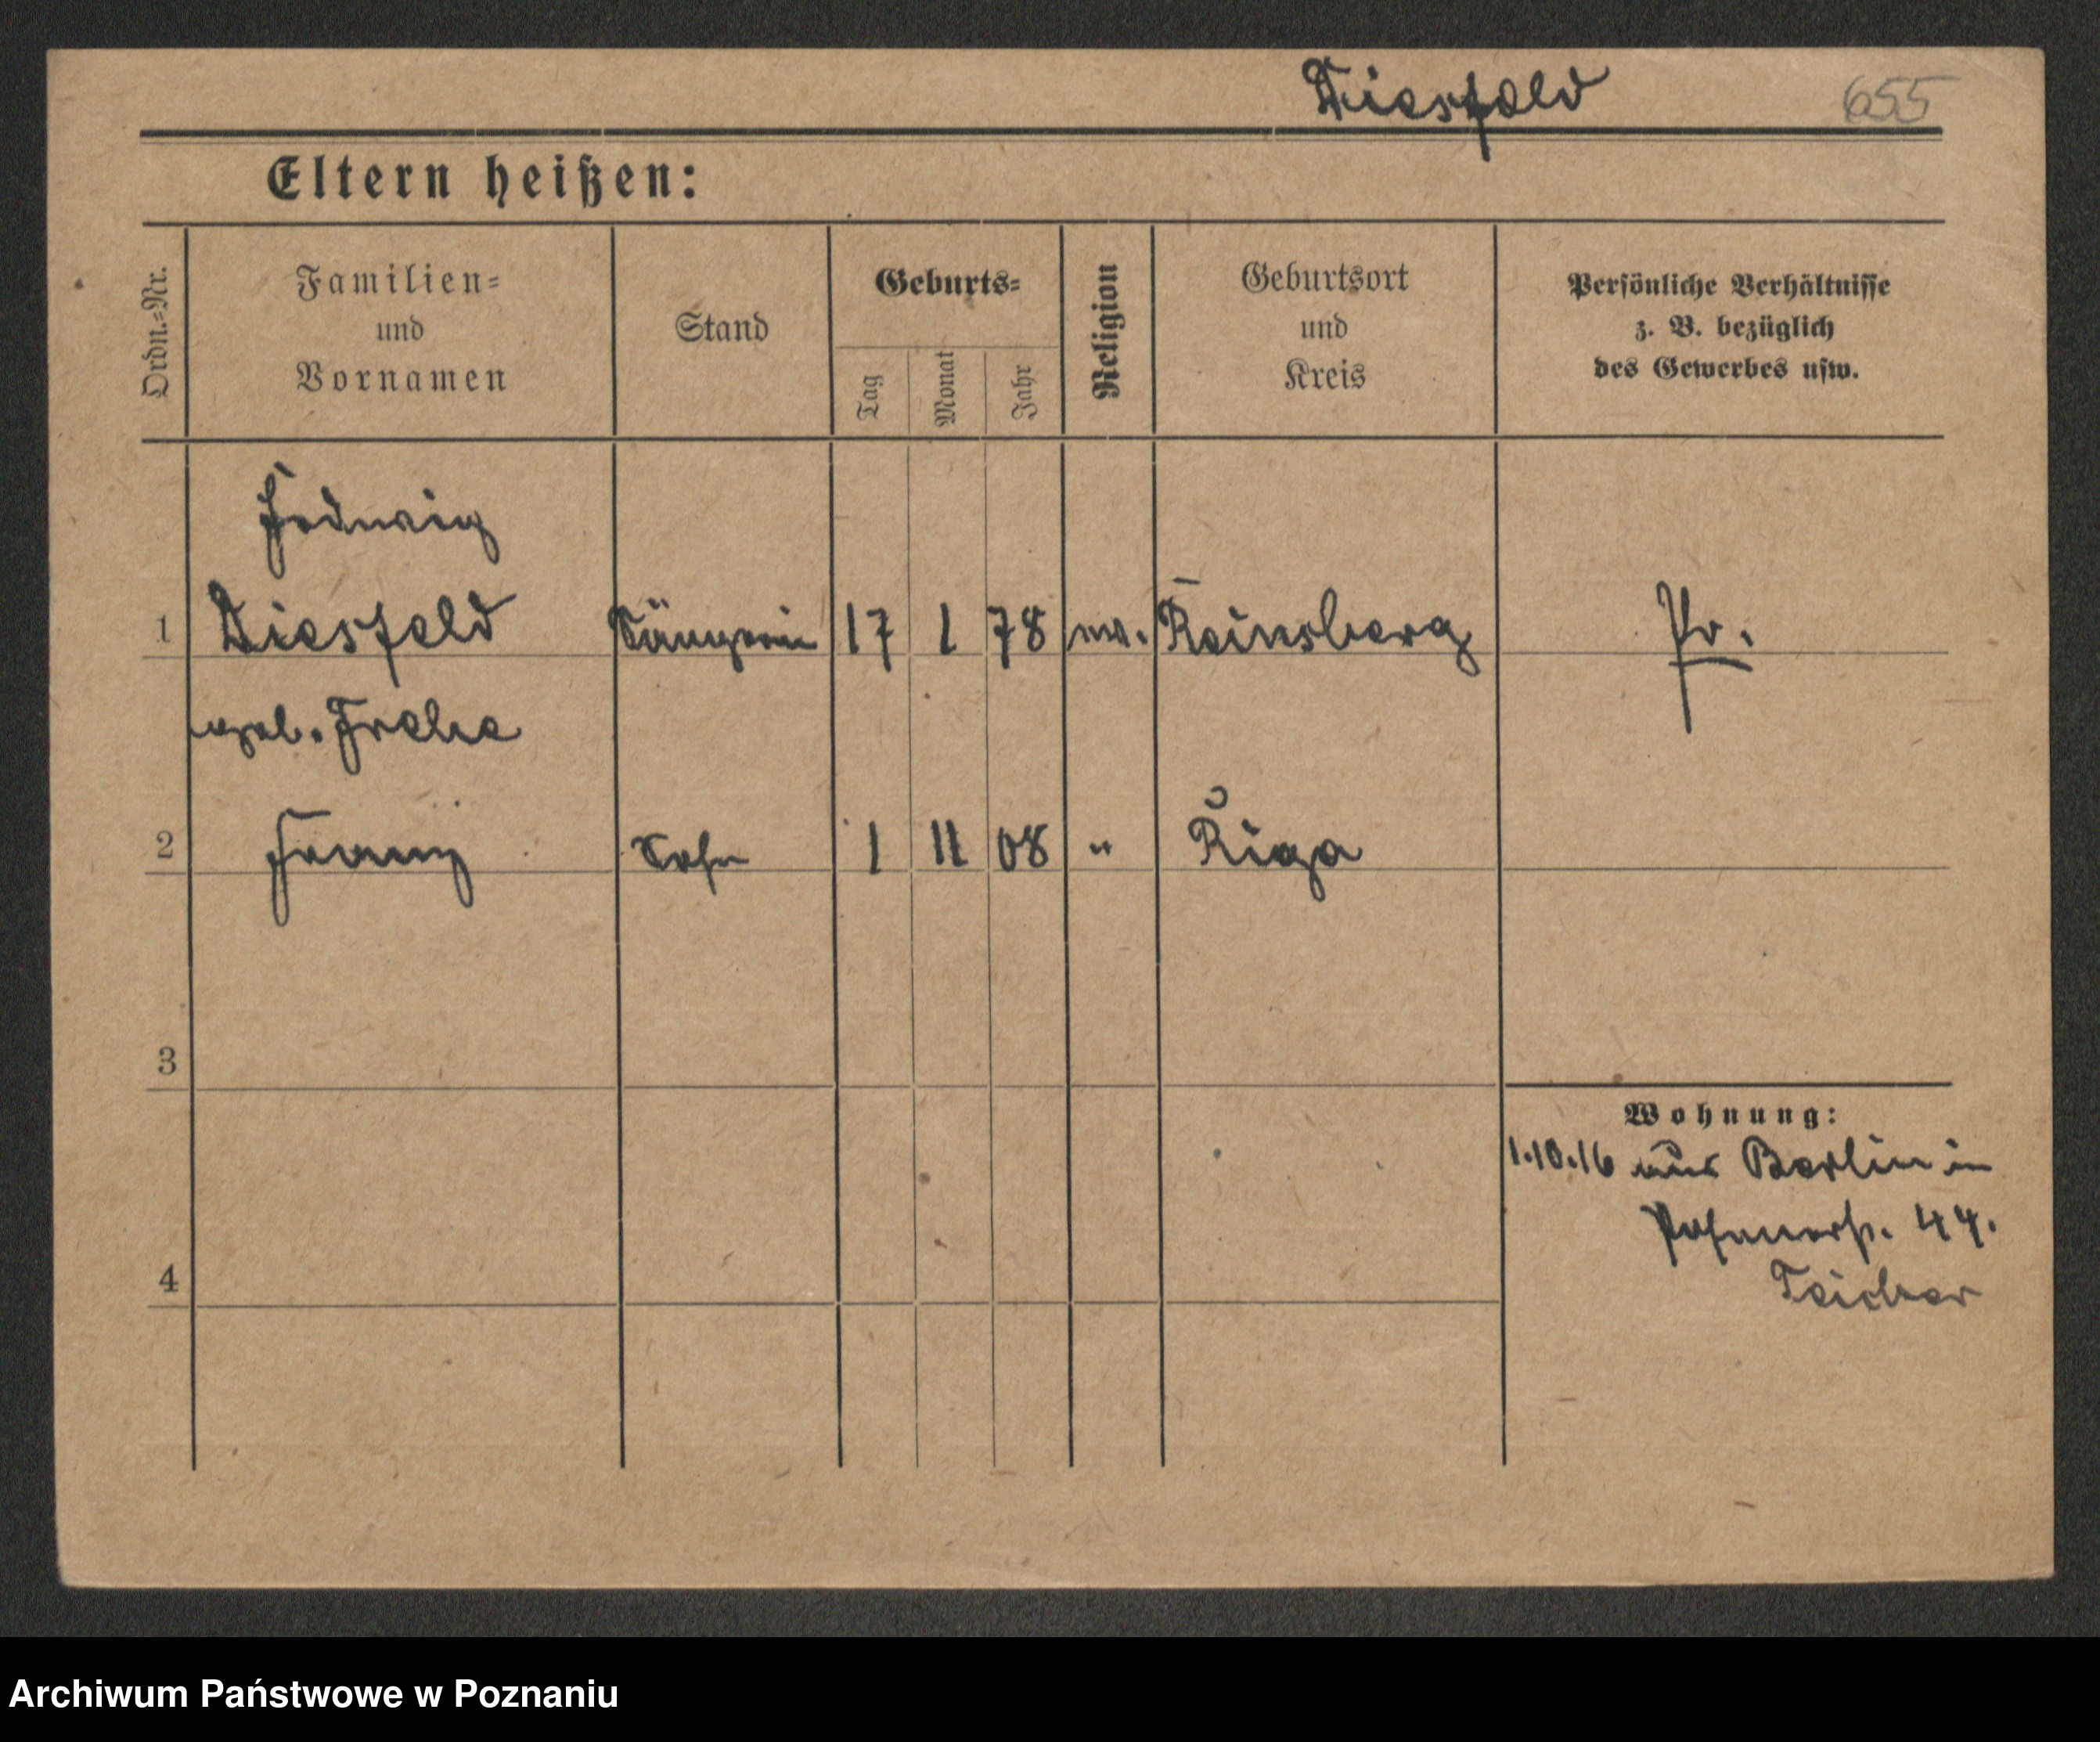 Diesfeld 655
Eltern heißen:
Ordn.=Nr.
Familien=
und
Vornamen
Stand
Geburts=
Tag
Monat
Jahr
Religion
Geburtsort
und
Kreis
Persönliche Verhältnisse
z. B. bezüglich
des Gewerbes usw.
Hedwig
1 Diesfeld Sängerin 17 1 78 ev. Reinsberg Pr.
geb. Frehe
2 Franz Sohn 1 11 08 " Riga
3
Wohnung:
1.10.16 aus Berlin in
Posenerstr. 44.
4
Teicher
Archiwum Państwowe w Poznaniu